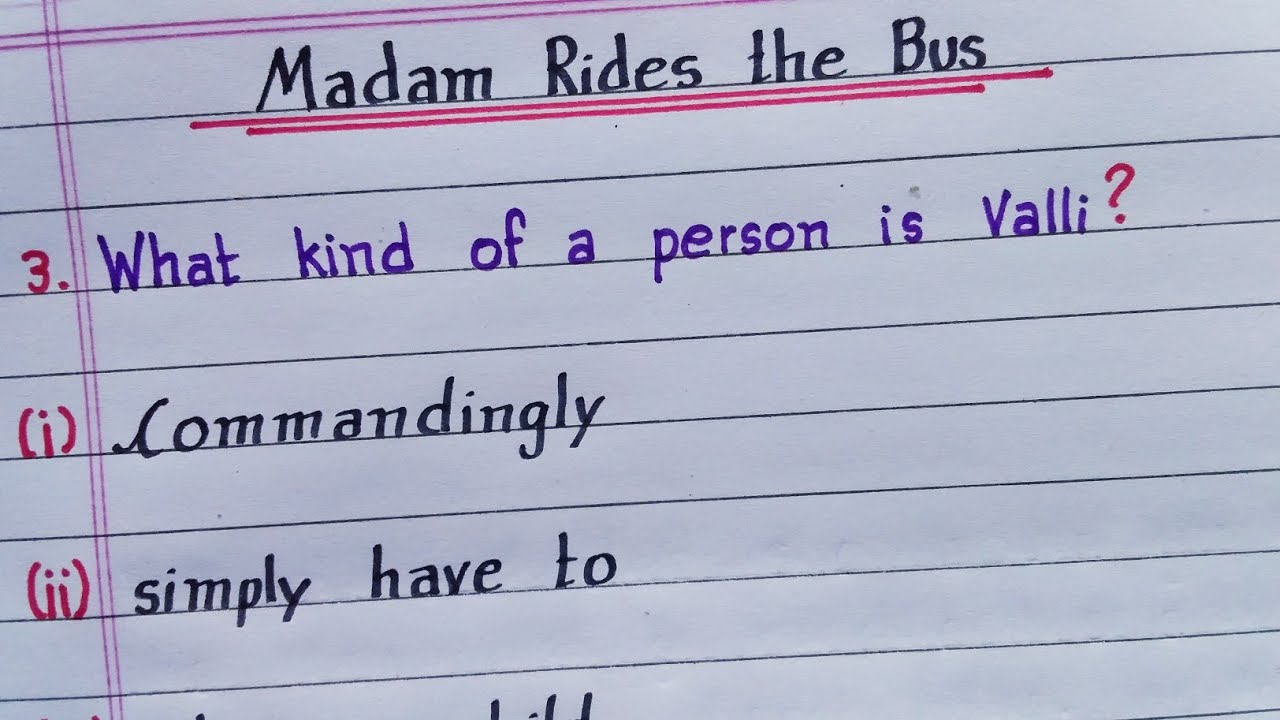 Madam Rides the Bus
3. What kind of a person is Valli?
(i) Commandingly
(ii) simply have to